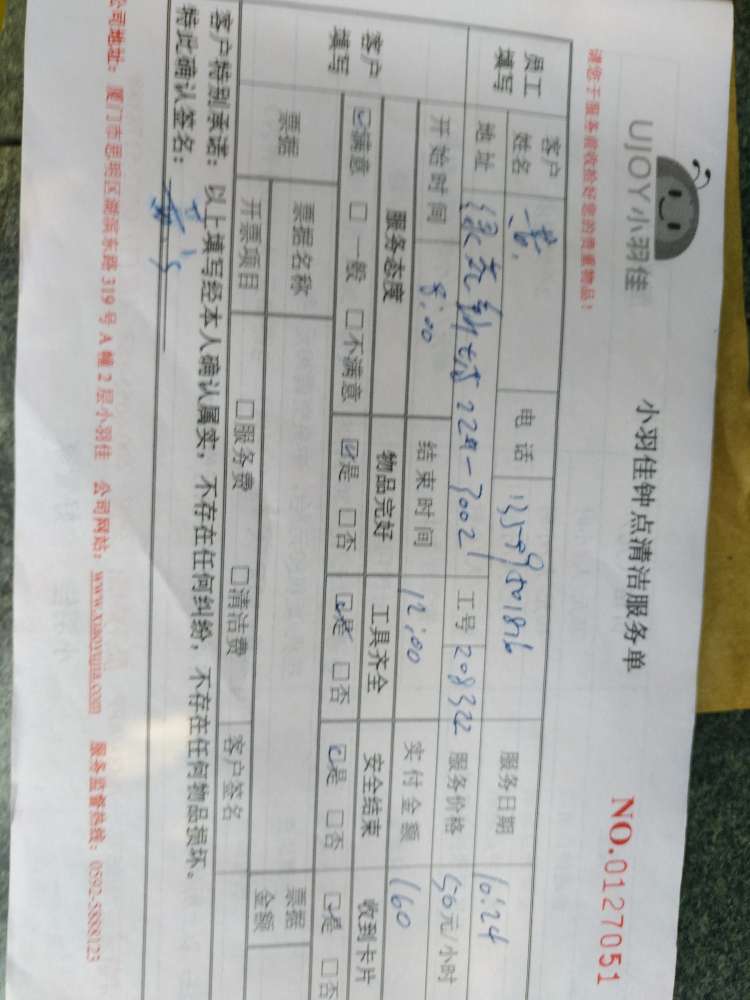 UJOY小羽佳
小羽佳钟点清洁服务单
NO.0127051
请您于服务前收拾好您的贵重物品!
员工填写 客户姓名 电话 服务日期 10.24
地址 工号 208322 服务价格 元/小时
开始时间 8:00 结束时间 12:00 实付金额 160
客户填写 服务态度 物品完好 工具齐全 安全结束 收到卡片
☑满意 □一般 □不满意 ☑是 □否 ☑是 □否 ☑是 □否 ☑是 □否
票据 票据名称 票据金额
开票项目 □服务费 □清洁费 客户签名
客户特别承诺:以上填写经本人确认属实,不存在任何纠纷,不存在任何物品损坏。
特此确认签名:
公司地址:厦门市思明区湖滨东路319号A幢2层小羽佳 公司网站:www.xiaoyujia.com 服务监督热线:0592-5800123